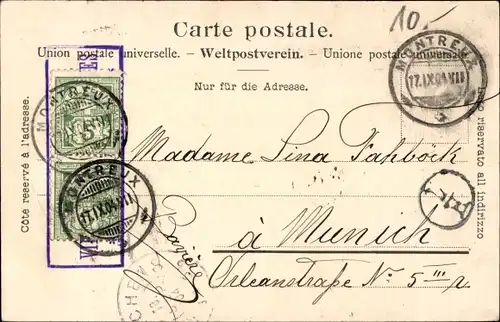 10.-
Carte postale.
Union postale universelle. - Weltpostverein. - Unione postale universale.
Nur für die Adresse.
Côte reservé à l'adresse.
MONTREUX
5
MONTREUX
17.IX.04.VII
MONTREUX
17.IX.04.VII
riservato all indirizzo
Madame Lina Fahböck
à Munich
(Bavière)
Orleanstraße No. 5 III r.